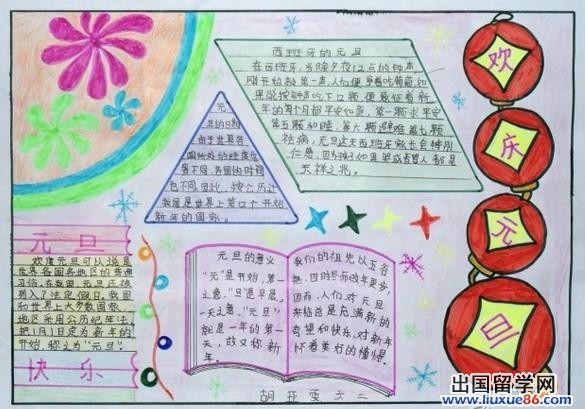 西班牙的元旦
在西班牙,当除夕夜12点的钟声
刚开始敲第一声,人们便争着吃葡萄,如
果能按钟声吃下12颗,便象征着新
年的每个月都平安如意,第一颗求平安
第五颗和睦,第六颗避难第七颗
祛病,元旦这天西班牙家长会特别
仁慈,因为孩如果哭或者骂人都是
不祥之兆。
元
旦的日期
由于世界各
国所处的经度位
置不同,各国的时间
也不同,因此,按公历计
我国是世界上第12个开始
新年的国家。
元旦
欢度元旦可以说是
世界各国各地区的普遍
习俗,在我国,元旦还被
列入了法定假日。我国
和世界上大多数国家
地区采用公历纪年法
把1月1日定为新年的
开始,称之为“元旦”。
快乐
元旦的意义
“元”是开始,第一
之意,“旦”是早晨,
一天之意,“元旦”
就是一年的第一
天,故又称新
年。
我们的祖先以五谷
熟,四时尽而改年更岁,
因而,人们对元旦
来临总是充满新的
希望和快乐,对新年
怀着美好的憧憬。
欢
庆
元
旦
胡亚雯
出国留学网
www.liuxue86.com